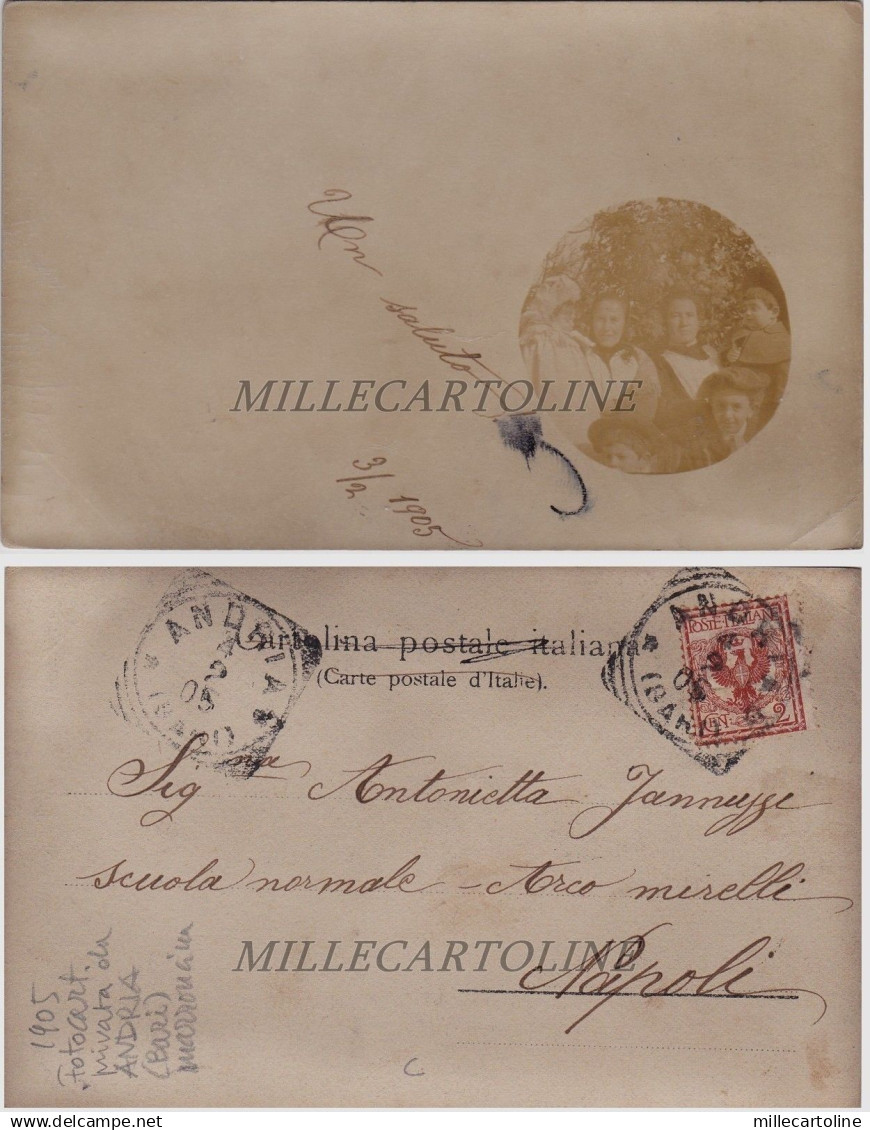 Un saluto
MILLECARTOLINE
3/2 1905
ANDRIA
(BARI)
05
Cartolina postale italiana
(Carte postale d'Italie).
ANDRIA
(BARI)
05
POSTE ITALIANE
CEN. 2
Sig.na Antonietta Jannuzzi
scuola normale - Arco mirelli
MILLECARTOLINE
Napoli
1905
Fotocart.
privata da
ANDRIA
(Bari)
C
Delcampe.net
millecartoline